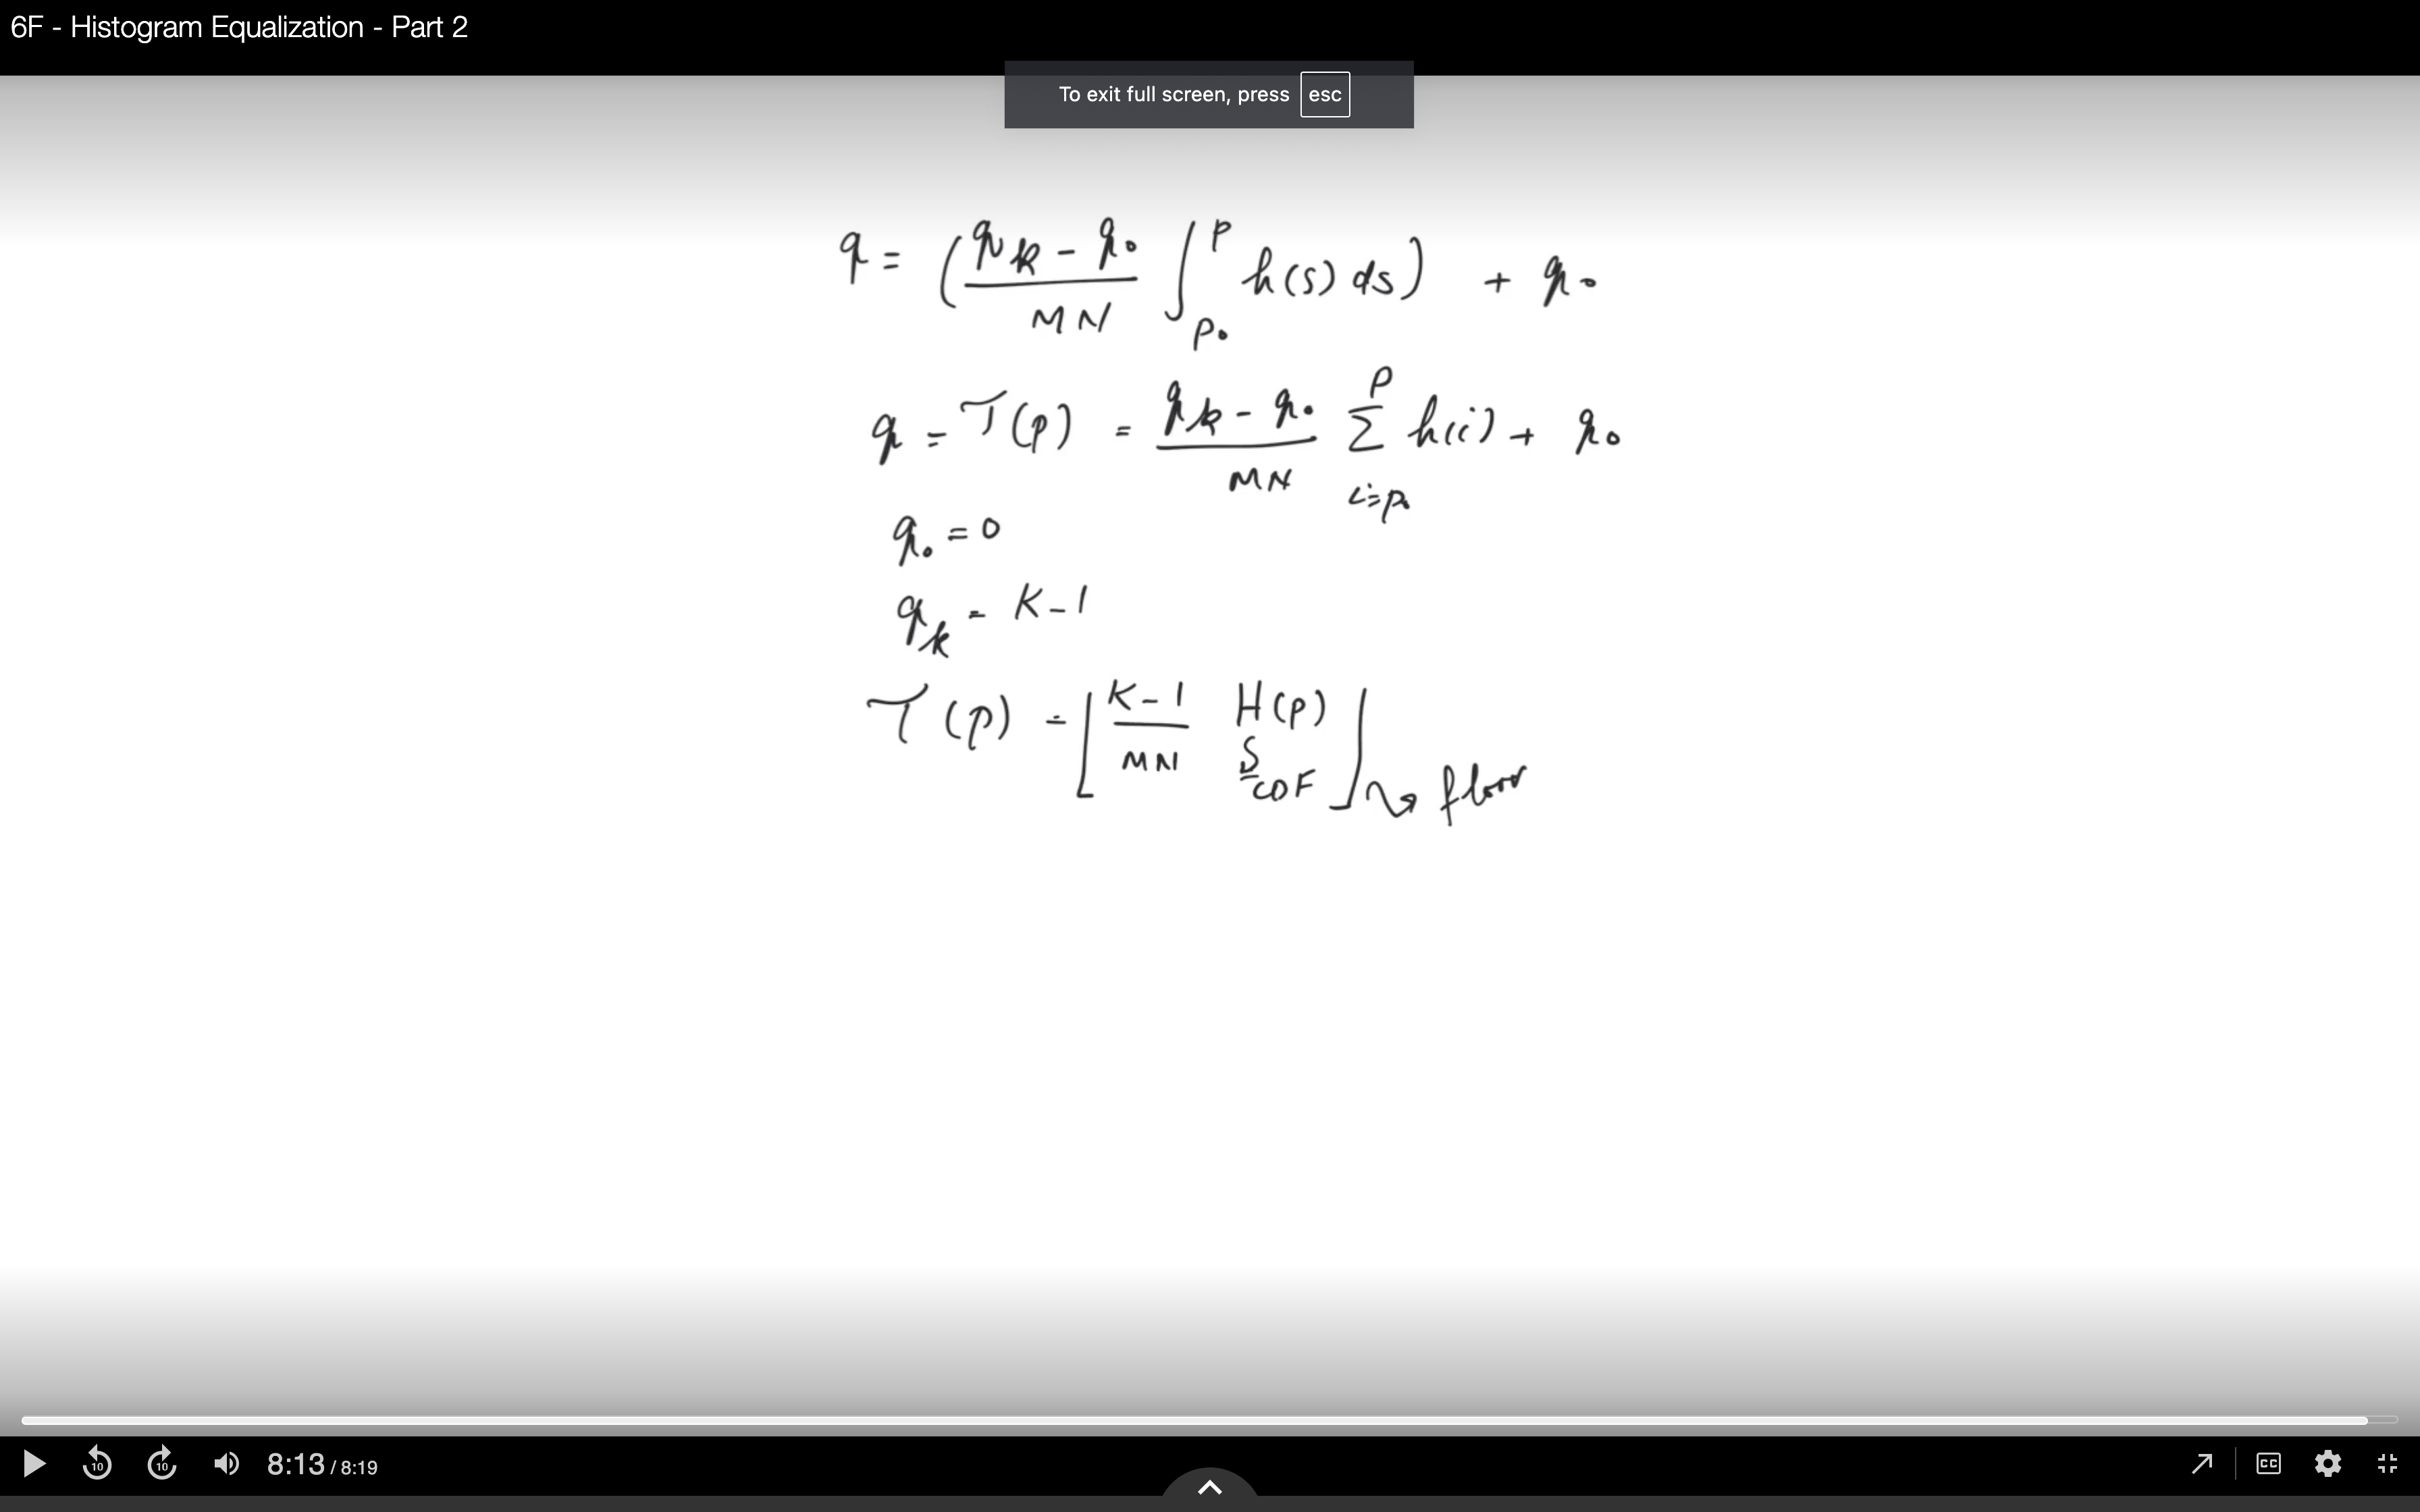 6F - Histogram Equalization - Part 2
To exit full screen, press esc
q = ( (q_k - q_0) / MN ∫_{p_0}^{p} h(s) ds ) + q_0
q = T(p) = (q_k - q_0) / MN Σ_{i=p_0}^{p} h(i) + q_0
q_0 = 0
q_k = K-1
T(p) = ⌊ (K-1) / MN H(p) ⌋ floor
CDF
10 10 8:13 / 8:19 CC